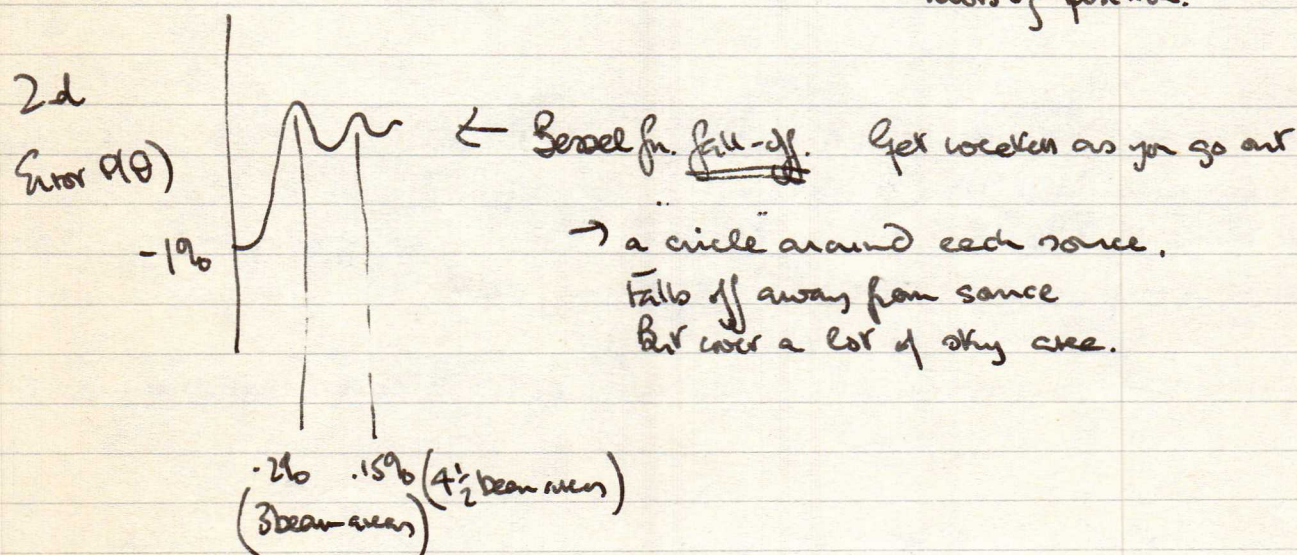 of position.
2d
Error P(θ)
-1%
← Bessel fn. fall-off. Get weaker as you go out
→ a "circle" around each source.
Falls off away from source
But cover a lot of sky area.
.2% .15% (4½ beam areas)
(3 beam areas)